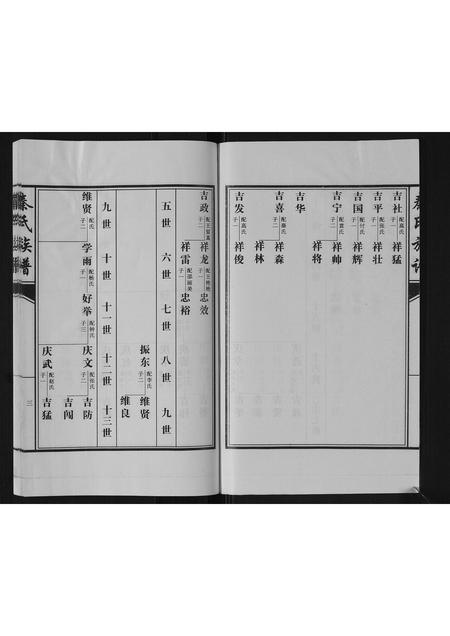 吉社 配高氏 子一 祥猛
吉平 配张氏 子一 祥壮
吉国 配付氏 子一 祥辉
吉宁 配袁氏 子二 祥帅
祥将
吉华
吉喜 配秦氏 子二 祥森
祥林
吉发 配高氏 子一 祥俊
吉政 子二 祥龙 子一 忠效
祥雷 配邵丽美 子一 忠裕
五世 六世 七世 八世 九世
振东 配李氏 子二 维贤
维良
九世 十世 十一世 十二世 十三世
维贤 配氏 子二 学雨 配杨氏 子一 好举 配钟氏 子三 庆文 配张氏 子二 吉防
吉闯
庆武 配赵氏 子一 吉猛
氏族谱
三